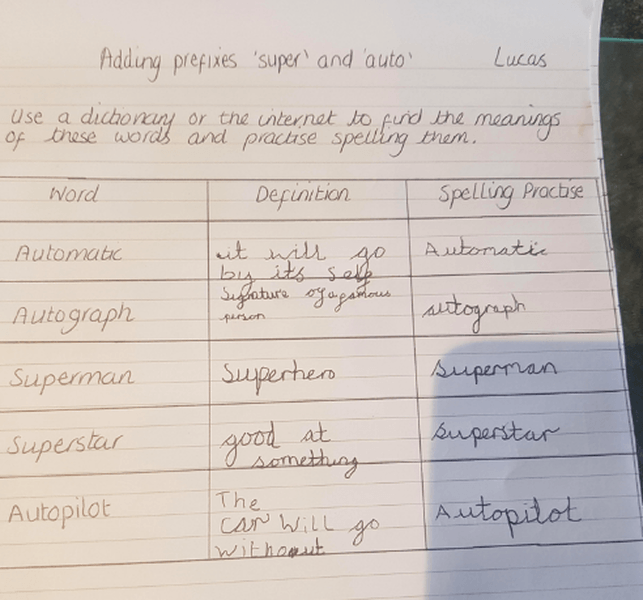 Adding prefixes 'super' and 'auto' Lucas
Use a dictionary or the internet to find the meanings
of these words and practise spelling them.
Word Definition Spelling Practise
Automatic it will go Automatic
by its self
Autograph Signature of a famous autograph
person
Superman Superhero Superman
Superstar good at Superstar
something
Autopilot The Autopilot
car will go
without